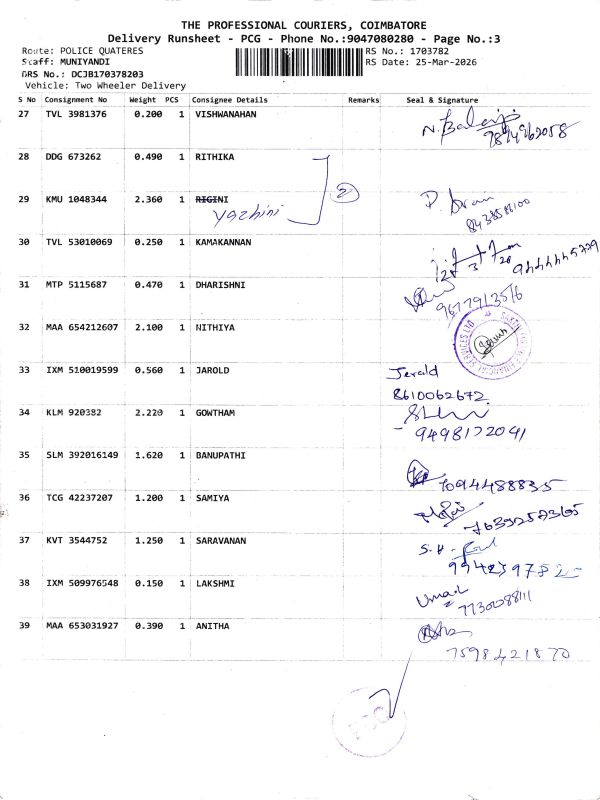 THE PROFESSIONAL COURIERS, COIMBATORE
Delivery Runsheet - PCG - Phone No.:9047080280 - Page No.:3
Route: POLICE QUATERES
RS No.: 1703782
Staff: MUNIYANDI
RS Date: 25-Mar-2026
DRS No.: DCJB170378203
Vehicle: Two Wheeler Delivery
S No Consignment No Weight PCS Consignee Details Remarks Seal & Signature
27 TVL 3981376 0.200 1 VISHWANAHAN
28 DDG 673262 0.490 1 RITHIKA
2
29 KMU 1048344 2.360 1 RIGINI
Yazhini
30 TVL 53010069 0.250 1 KAMAKANNAN
31 MTP 5115687 0.470 1 DHARISHNI
32 MAA 654212607 2.100 1 NITHIYA
33 IXM 510019599 0.560 1 JAROLD Jerald
8610062672
34 KLM 920382 2.220 1 GOWTHAM
9498172041
35 SLM 392016149 1.620 1 BANUPATHI
7094488835
36 TCG 42237207 1.200 1 SAMIYA
37 KVT 3544752 1.250 1 SARAVANAN
38 IXM 509976548 0.150 1 LAKSHMI
39 MAA 653031927 0.390 1 ANITHA
7598421870